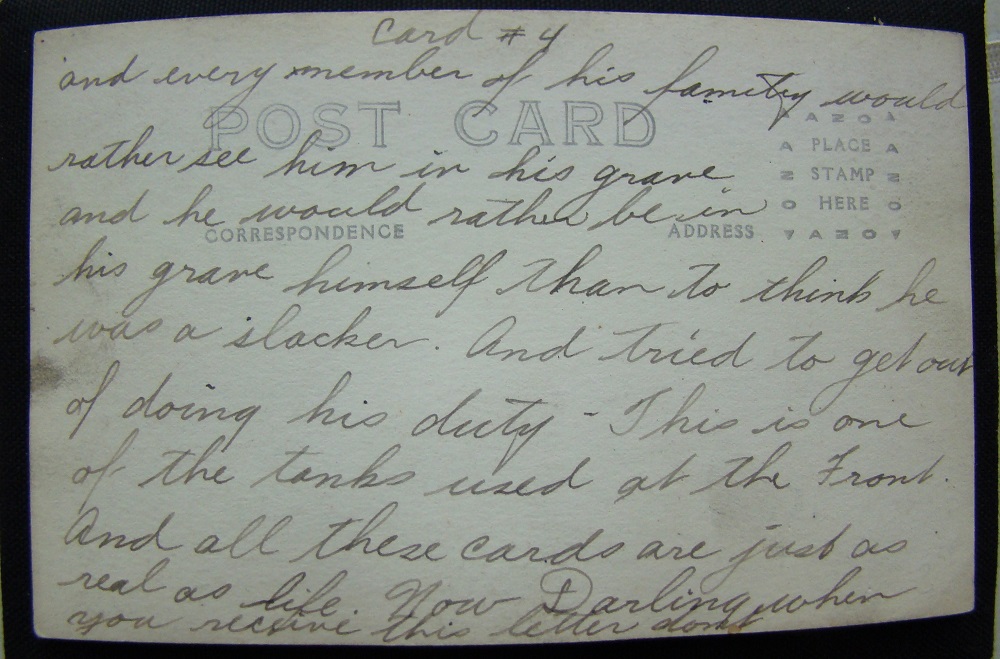 Card #4
and every member of his family would
POST CARD
AZO
A PLACE A
rather see him in his grave
Z STAMP Z
and he would rather be in
O HERE O
CORRESPONDENCE
ADDRESS
AZO
his grave himself than to think he
was a slacker. And tried to get out
of doing his duty - This is one
of the tanks used at the Front.
And all these cards are just as
real as life. Now Darling when
you receive this letter dont